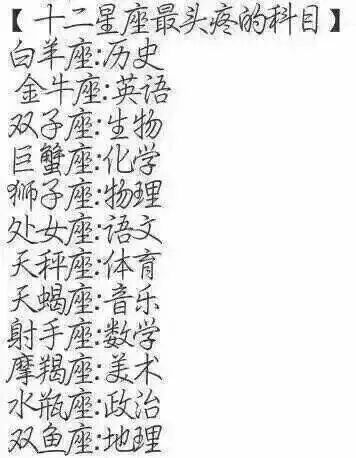 【十二星座最头疼的科目】
白羊座:历史
金牛座:英语
双子座:生物
巨蟹座:化学
狮子座:物理
处女座:语文
天秤座:体育
天蝎座:音乐
射手座:数学
摩羯座:美术
水瓶座:政治
双鱼座:地理